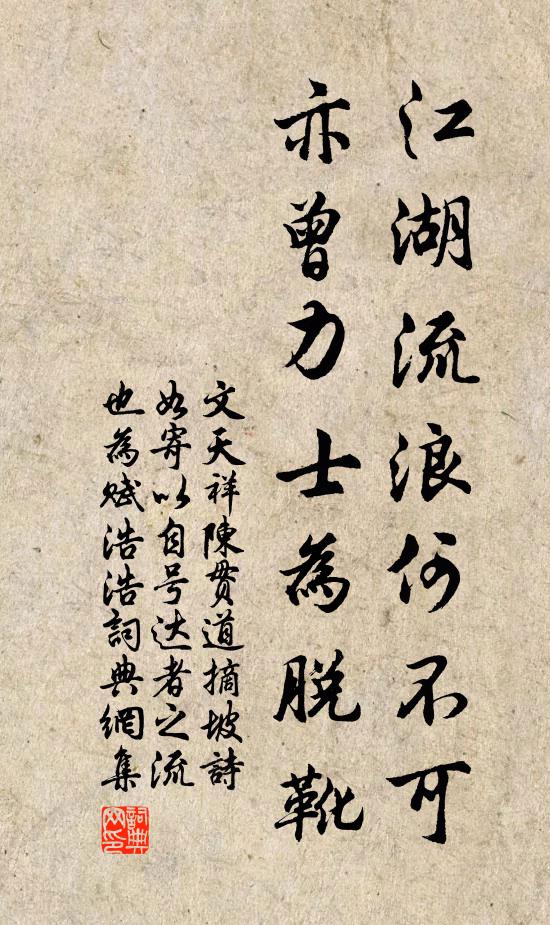 江湖流浪何不可
亦曾力士為脱靴
文天祥陳贯道摘坡詩
如寄以自号达者之流
也為赋浩浩詞典網集
詞典网印